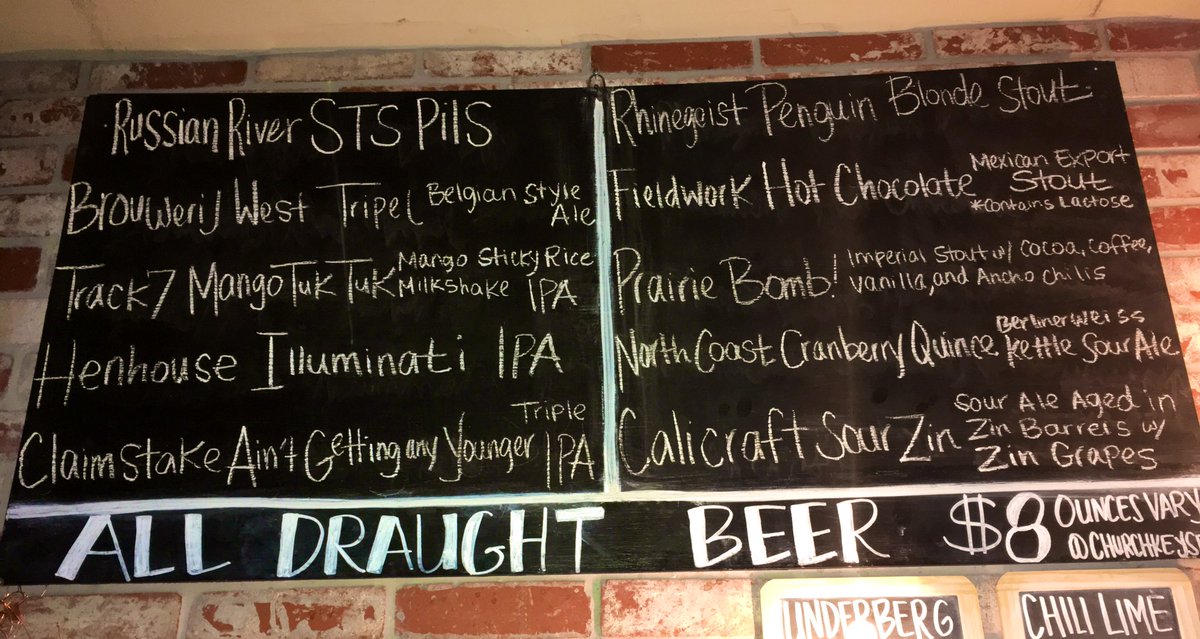 Russian River STS Pils
Brouwerij West Tripel Belgian Style
Ale
Track 7 Mango Tuk Tuk Mango Sticky Rice
Milkshake IPA
Henhouse Illuminati IPA
Claimstake Ain't Getting any Younger Triple
IPA
Rhinegeist Penguin Blonde Stout
Fieldwork Hot Chocolate Mexican Export
Stout
*Contains Lactose
Prairie Bomb! Imperial Stout w/ Cocoa, Coffee,
Vanilla, and Ancho Chilis
North Coast Cranberry Quince Berliner Weiss
Kettle Sour Ale
Calicraft Sour Zin Sour Ale Aged in
Zin Barrels w/
Zin Grapes
ALL DRAUGHT BEER $8 OUNCES VARY
@CHURCHKEYSF
UNDERBERG
CHILI LIME